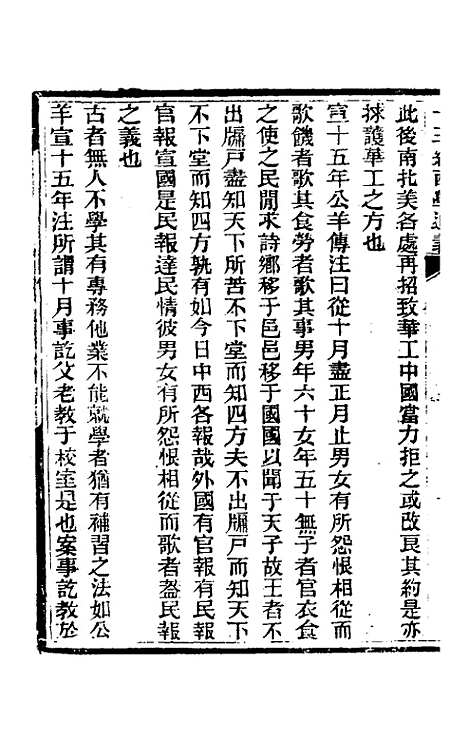 十三經西學通義
此後南北美各處再招致華工中國當力拒之或改良其約是亦
捄護華工之方也
宣十五年公羊傳注曰從十月盡正月止男女有所怨恨相從而
歌饑者歌其食勞者歌其事男年六十女年五十無子者官衣食
之使之民閒求詩鄉移于邑邑移于國國以聞于天子故王者不
出牖戶盡知天下所苦不下堂而知四方夫不出牖戶而知天下
不下堂而知四方孰有如今日中西各報哉外國有官報有民報
官報宣國是民報達民情彼男女有所怨恨相從而歌者葢民報
之義也
古者無人不學其有專務他業不能就學者猶有補習之法如公
羊宣十五年注所謂十月事訖父老教于校室是也案事訖教於